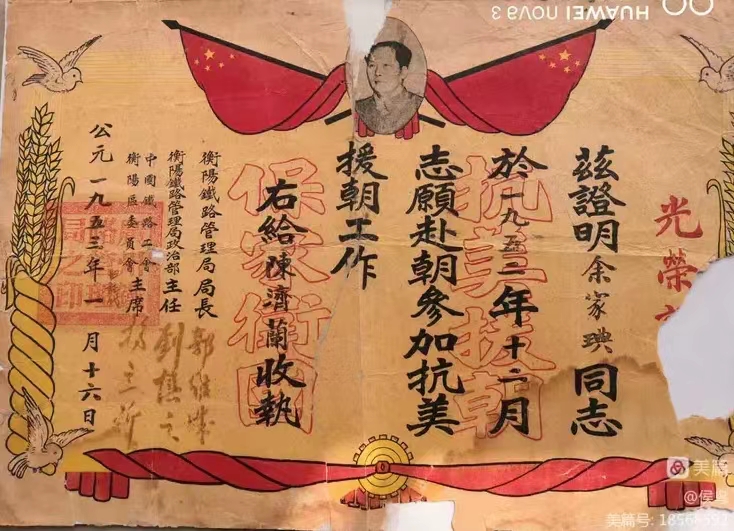 光榮
茲證明余家琠同志
於一九五二年十二月
志願赴朝參加抗美
援朝工作
右給陳濟蘭收執
衡陽鐵路管理局局長
衡陽鐵路管理局政治部主任
中國鐵路工會
衡陽區委員會主席
公元一九五三年一月十六日
抗美援朝
保家衛國
HUAWEI nova 3
美篇
@侯
美篇号: